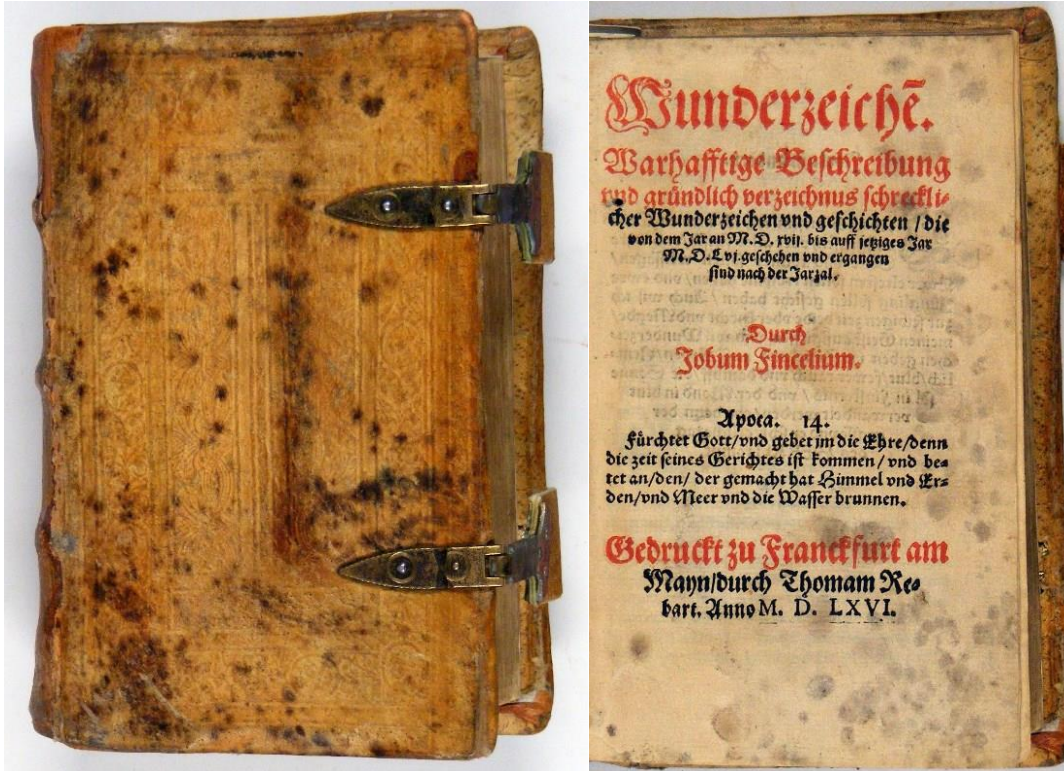 Wunderzeichẽ.
Warhafftige Beschreibung
vnd gründlich verzeichnus schreckli-
cher Wunderzeichen vnd geschichten / die
von dem Jar an M. D. xvij. bis auff jetziges Jar
M. D. Lvj. geschehen vnd ergangen
sind nach der Jarzal.
Durch
Jobum Fincelium.
Apoca. 14.
Fürchtet Gott/vnd gebet jm die Ehre/denn
die zeit seines Gerichtes ist kommen / vnd be-
tet an/den/ der gemacht hat Himmel vnd Er-
den/vnd Meer vnd die Wasser brunnen.
Gedruckt zu Franckfurt am
Mayn/durch Thomam Re-
bart. Anno M. D. LXVI.